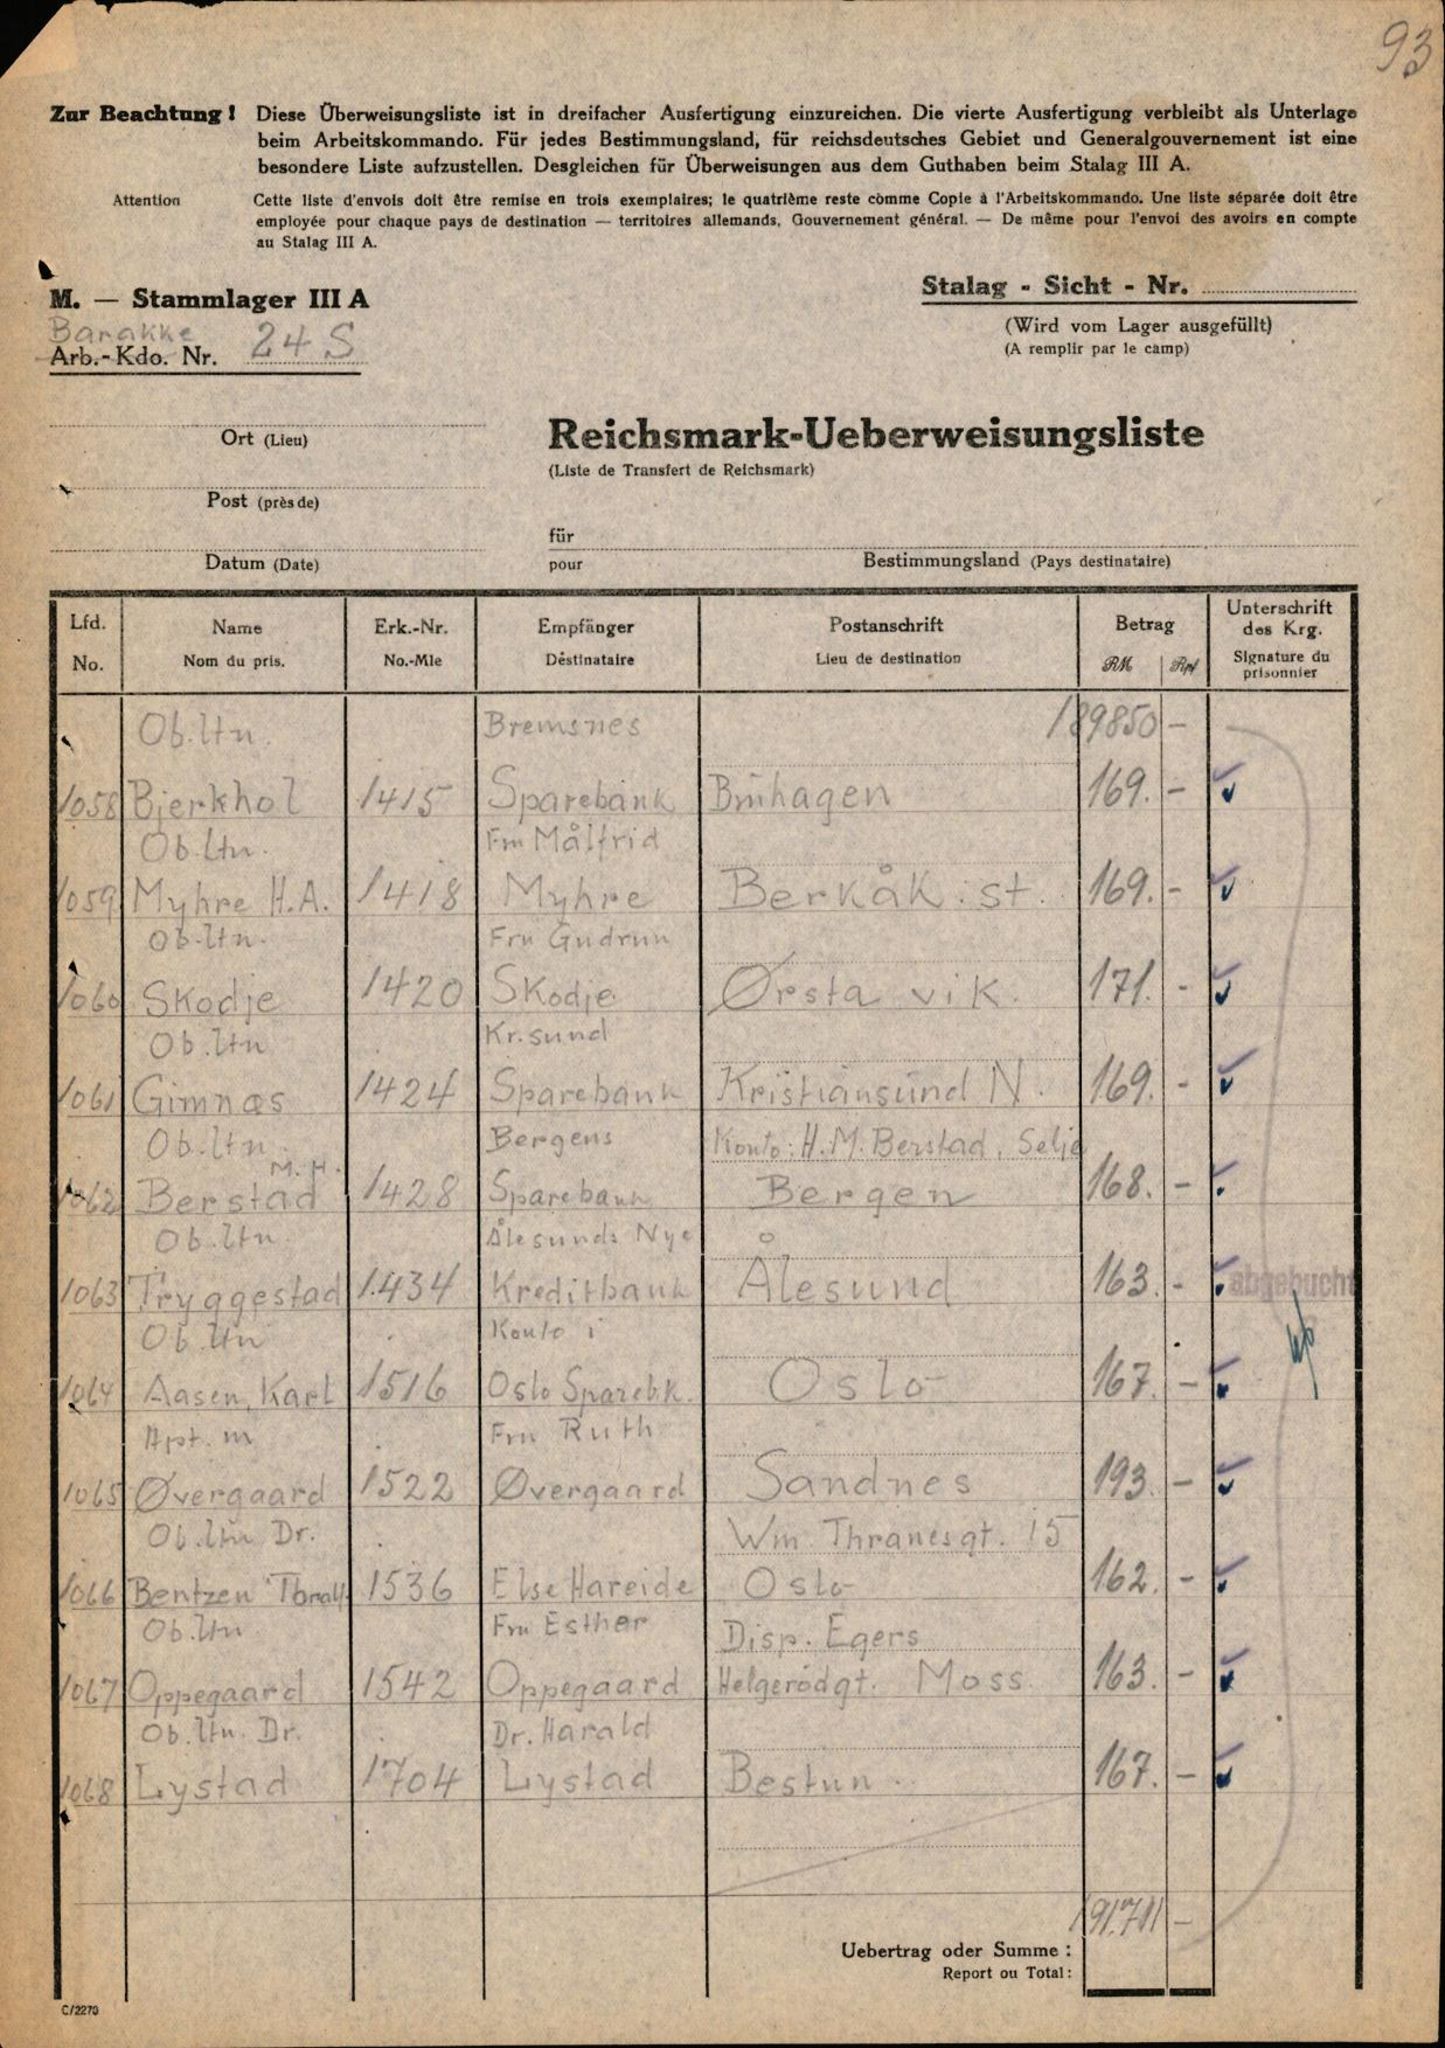 93
Zur Beachtung! Diese Überweisungsliste ist in dreifacher Ausfertigung einzureichen. Die vierte Ausfertigung verbleibt als Unterlage
beim Arbeitskommando. Für jedes Bestimmungsland, für reichsdeutsches Gebiet und Generalgouvernement ist eine
besondere Liste aufzustellen. Desgleichen für Überweisungen aus dem Guthaben beim Stalag III A.
Attention Cette liste d'envois doit être remise en trois exemplaires; le quatrième reste comme Copie à l'Arbeitskommando. Une liste séparée doit être
employée pour chaque pays de destination — territoires allemands, Gouvernement général. — De même pour l'envoi des avoirs en compte
au Stalag III A.
M. — Stammlager III A
Stalag - Sicht - Nr.
(Wird vom Lager ausgefüllt)
(A remplir par le camp)
Barakke
Arb.-Kdo. Nr. 24 S
Ort (Lieu)
Post (près de)
Datum (Date)
Reichsmark-Ueberweisungsliste
(Liste de Transfert de Reichsmark)
für
pour
Bestimmungsland (Pays destinataire)
Lfd. Name Erk.-Nr. Empfänger Postanschrift Betrag Unterschrift des Krg.
No. Nom du pris. No.-Mle Déstinataire Lieu de destination RM Rpf Signature du prisonnier
Ob.ltn. Bremsnes 189850 -
1058 Bjerkhol 1415 Sparebank Bruhagen 169. -
Ob.ltn. Fru Målfrid
1059 Myhre H.A. 1418 Myhre Berkåk. st. 169. -
Ob.ltn. Fru Gudrun
1060 Skodje 1420 Skodje Ørsta vik. 171. -
Ob.ltn Kr.sund
1061 Gimnæs 1424 Sparebank Kristiansund N. 169. -
Ob.ltn. Bergens Konto: H.M. Berstad, Selje
1062 Berstad M.H. 1428 Sparebank Bergen 168. -
Ob.ltn. Ålesunds Nye
1063 Tryggestad 1434 Kreditbank Ålesund 163. - abgebucht
Ob.ltn Konto i
1064 Aasen, Karl 1516 Oslo Sparebk. Oslo 167. -
Hpt. m Fru Ruth
1065 Øvergaard 1522 Øvergaard Sandnes 193. -
Ob.ltn Dr. Wm Thranesgt. 15
1066 Bentzen Thoralf 1536 Else Hareide Oslo 162. -
Ob.ltn. Fru Esther Disp. Egers
1067 Oppegaard 1542 Oppegaard Helgerödgt. Moss 163. -
Ob.ltn. Dr. Dr. Harald
1068 Lystad 1704 Lystad Bestun. 167. -
191.711 -
Uebertrag oder Summe:
Report ou Total:
C/2270